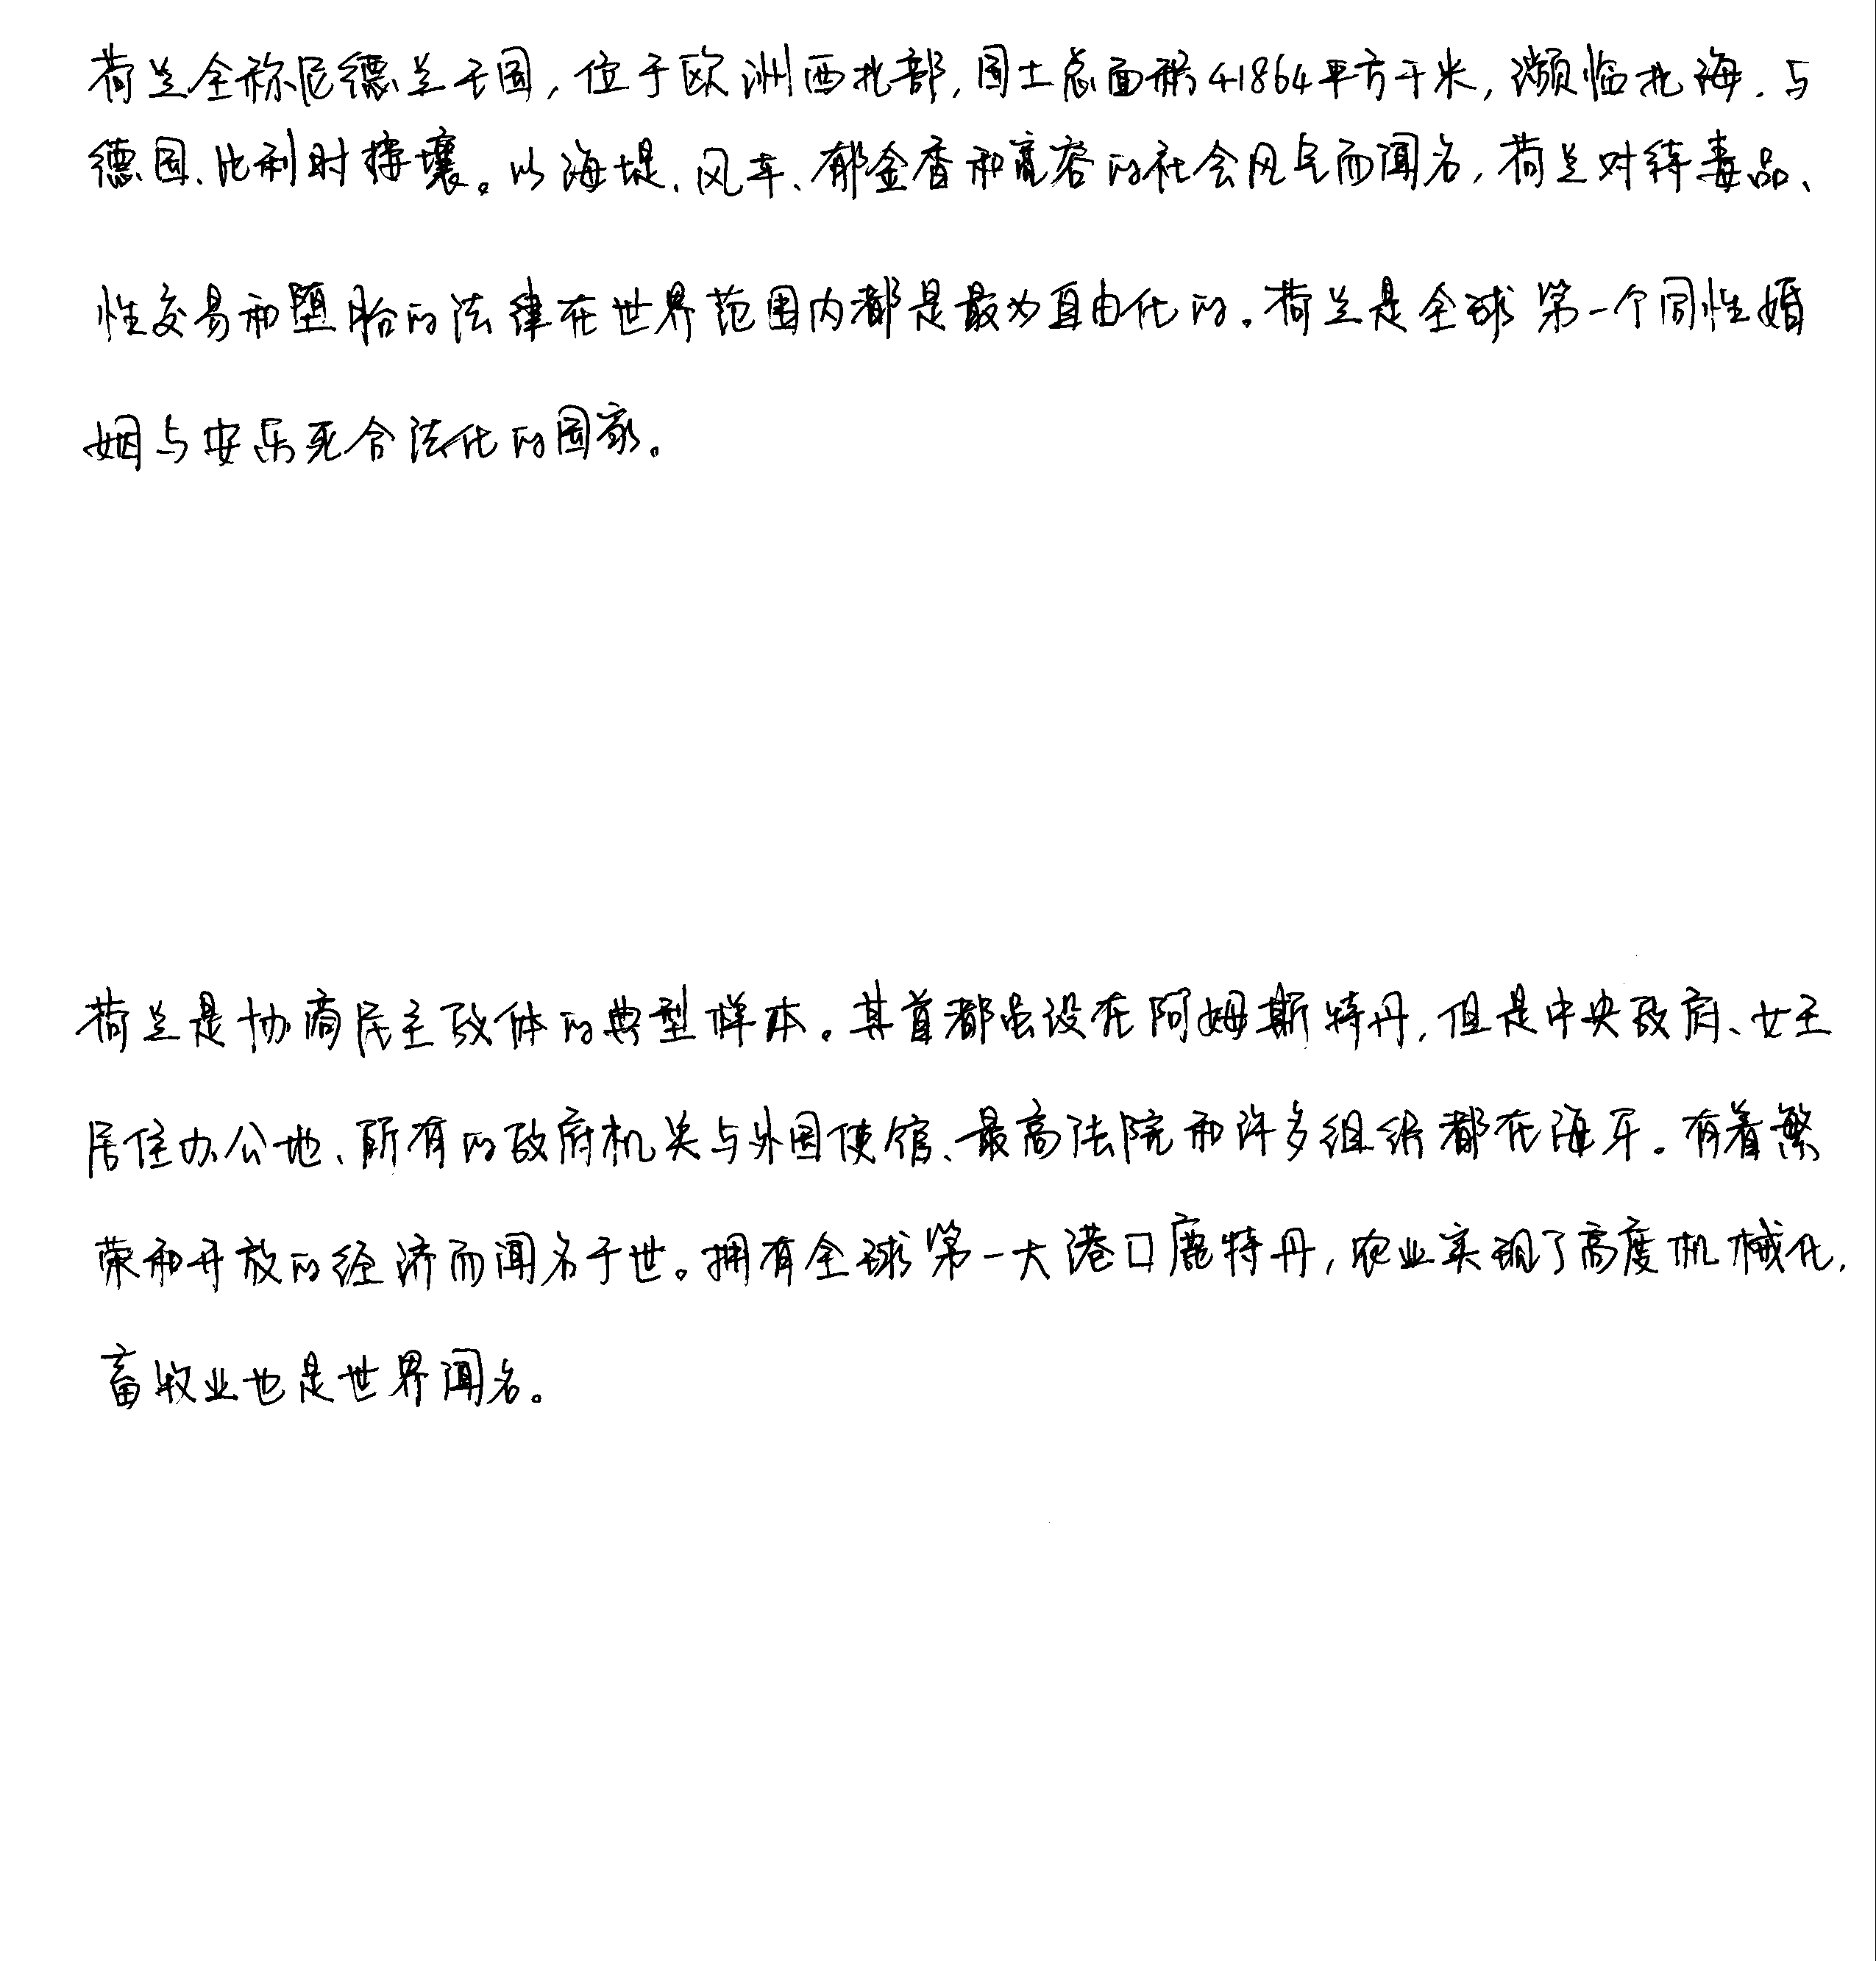 荷兰全称尼德兰王国，位于欧洲西北部，国土总面积41864平方千米，濒临北海，与
德国、比利时接壤。以海堤、风车、郁金香和宽容的社会风气而闻名，荷兰对待毒品、
性交易和堕胎的法律在世界范围内都是最为自由化的。荷兰是全球第一个同性婚
姻与安乐死合法化的国家。
荷兰是协商民主政体的典型样本。其首都虽设在阿姆斯特丹，但是中央政府、女王
居住办公地、所有的政府机关与外国使馆、最高法院和许多组织都在海牙。有着繁
荣和开放的经济而闻名于世。拥有全球第一大港口鹿特丹，农业实现了高度机械化，
畜牧业也是世界闻名。